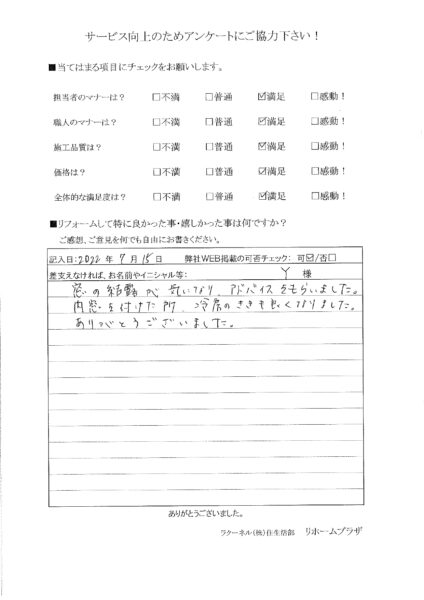 サービス向上のためアンケートにご協力下さい！
■当てはまる項目にチェックをお願いします。
担当者のマナーは？ □不満 □普通 ☑満足 □感動！
職人のマナーは？ □不満 □普通 ☑満足 □感動！
施工品質は？ □不満 □普通 ☑満足 □感動！
価格は？ □不満 □普通 ☑満足 □感動！
全体的な満足度は？ □不満 □普通 ☑満足 □感動！
■リフォームして特に良かった事・嬉しかった事は何ですか？
ご感想、ご意見を何でも自由にお書きください。
記入日:2022 年 7 月 15 日 弊社WEB掲載の可否チェック： 可☑/否□
差支えなければ、お名前やイニシャル等： Y 様
窓の結露が気になり、アドバイスをもらいました。
内窓を付けた所、冷房のききも良くなりました。
ありがとうございました。
ありがとうございました。
ラクーネル（株）住生活部 リホームプラザ